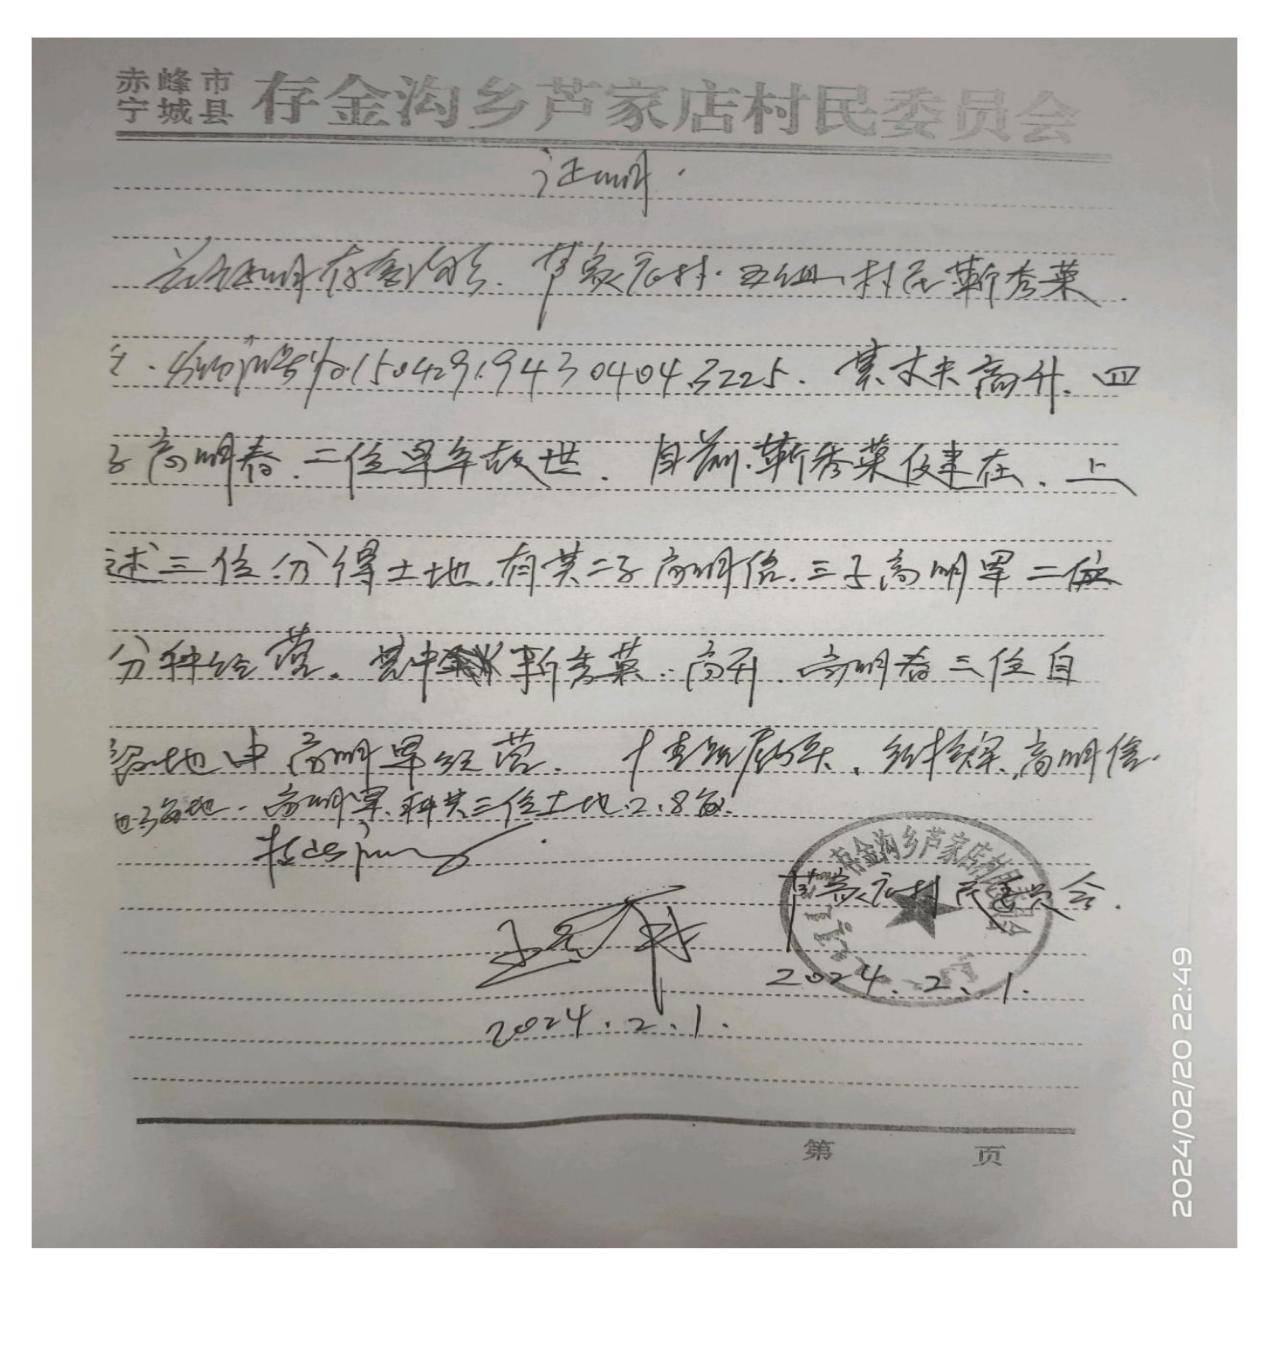 赤峰市
宁城县 存金沟乡芦家店村民委员会
证明.
兹证明存金沟乡.芦家店村.五组村民靳秀荣.
女.身份证号为150429194304043225.其丈夫高升.四
子高明春.二位早年故世.目前.靳秀荣仅建在.上
述三位分得土地.有其二子高明信.三子高明军二位
分种经营.其中靳秀荣.高升.高明春三位自
地由高明军经营.高明信.
地.高明军.种其三位土地2.8亩.
存金沟乡芦家店村民委员会
芦家店村民委员会.
2024.2.1.
2024.2.1.
第 页
2024/02/20 22:49